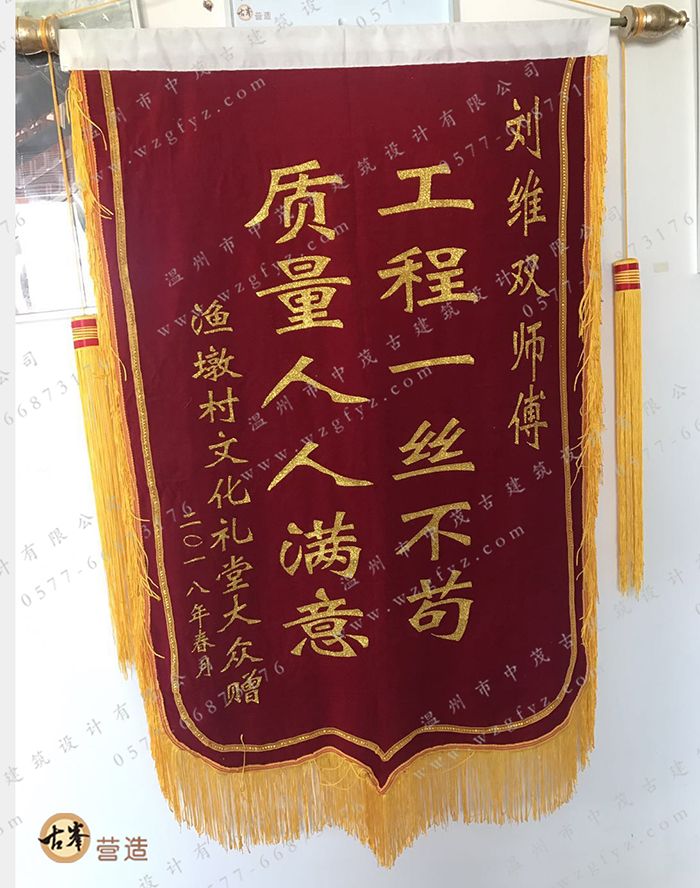 刘维双师傅
工程一丝不苟
质量人人满意
渔墩村文化礼堂大众赠
二〇一八年春月
古峯营造
温州市中茂古建筑设计有限公司
www.wzgfyz.com
0577-66873176